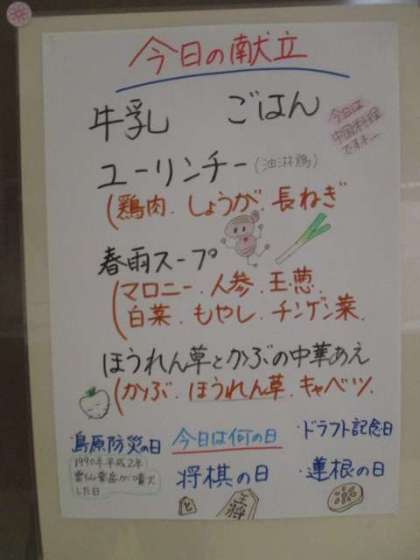 今日の献立
牛乳 ごはん
今日は
中国料理
ですネ…
ユーリンチー(油淋鶏)
(鶏肉.しょうが.長ねぎ
春雨スープ
(マロニー.人参.玉葱
白菜.もやし.チンゲン菜.
ほうれん草とかぶの中華あえ
(かぶ.ほうれん草.キャベツ.
・島原防災の日
1990年平成2年
雲仙普賢岳が噴火
した日
今日は何の日
・ドラフト記念日
将棋の日
・蓮根の日
と
王将